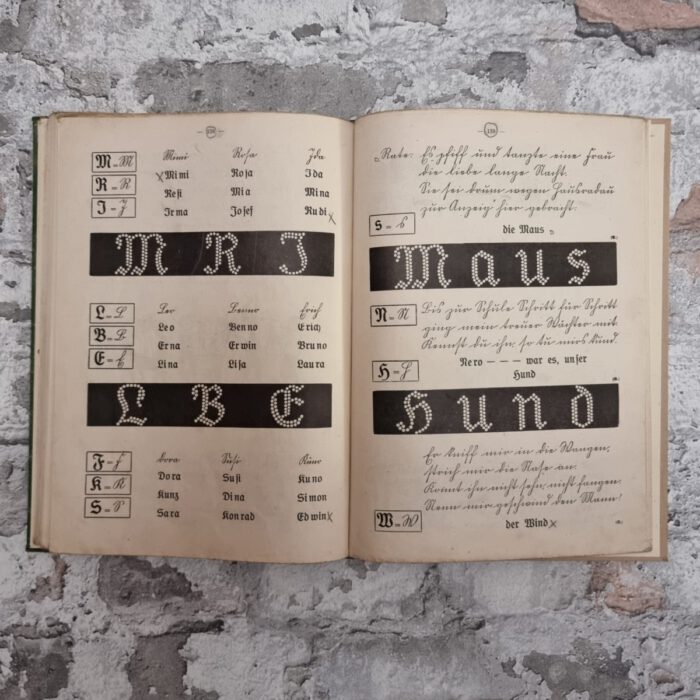 M = M
Mimi Rosa Ida
R = R
Mimi Rosa Ida
Resi Mia Mina
I = I
Irma Josef Rudi
M R I
L = L
Leo Benno Erich
B = B
Leo Benno Erich
Erna Erwin Bruno
E = E
Lina Lisa Laura
L B E
F = F
Dora Susi Kuno
K = K
Dora Susi Kuno
Kunz Dina Simon
S = S
Sara Konrad Edwin
139
„Rate: Es pfiff und tanzte eine Frau
die liebe lange Nacht.
Sie sei drum wegen Hausradau
zur Anzeig' hier gebracht:
s = s
die Maus
Maus
N = N
Bis zur Schule Schritt für Schritt
ging mein treuer Wächter mit.
Kennst du ihn, so tu mirs kund.
Nero – – – war es, unser
Hund
H = H
Hund
Er kniff mir in die Wangen,
strich mir die Nase an.
Konnt ihn nicht sehn, nicht fangen.
Nenn mir geschwind den Mann!
W = W
der Wind